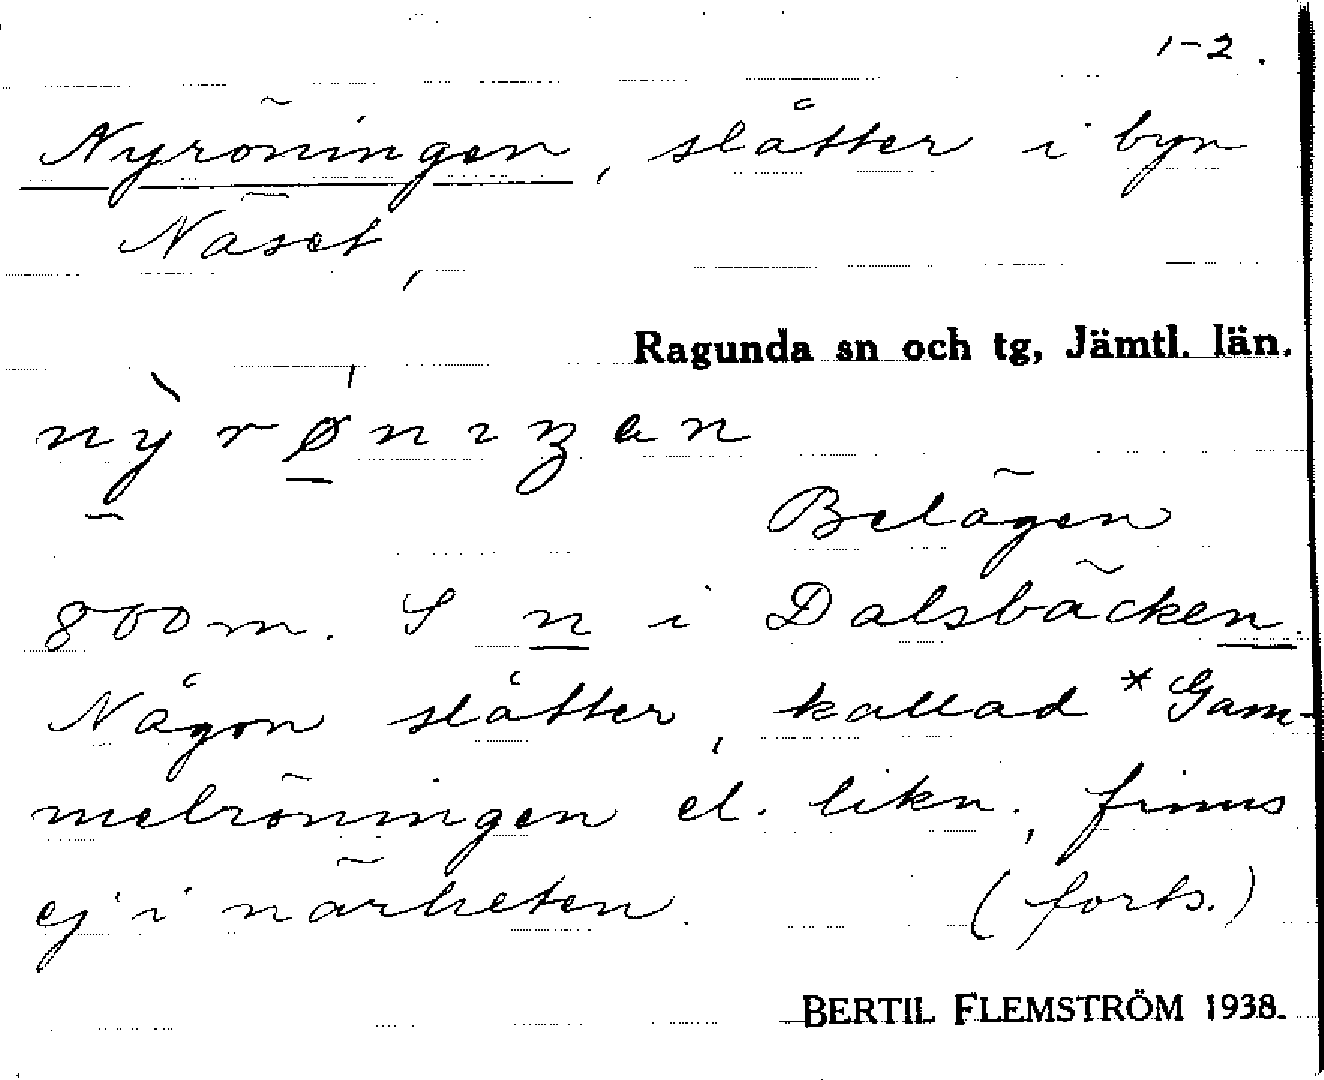 1-2.
Nyröningen, slåtter i byn
Näset,
Ragunda sn och tg, Jämtl. län.
Belägen
800 m. S n i Dalsbäcken
Någon slåtter, kallad *Gam-
melröningen el. likn., finns
ej i närheten. (forts.)
BERTIL FLEMSTRÖM 1938.